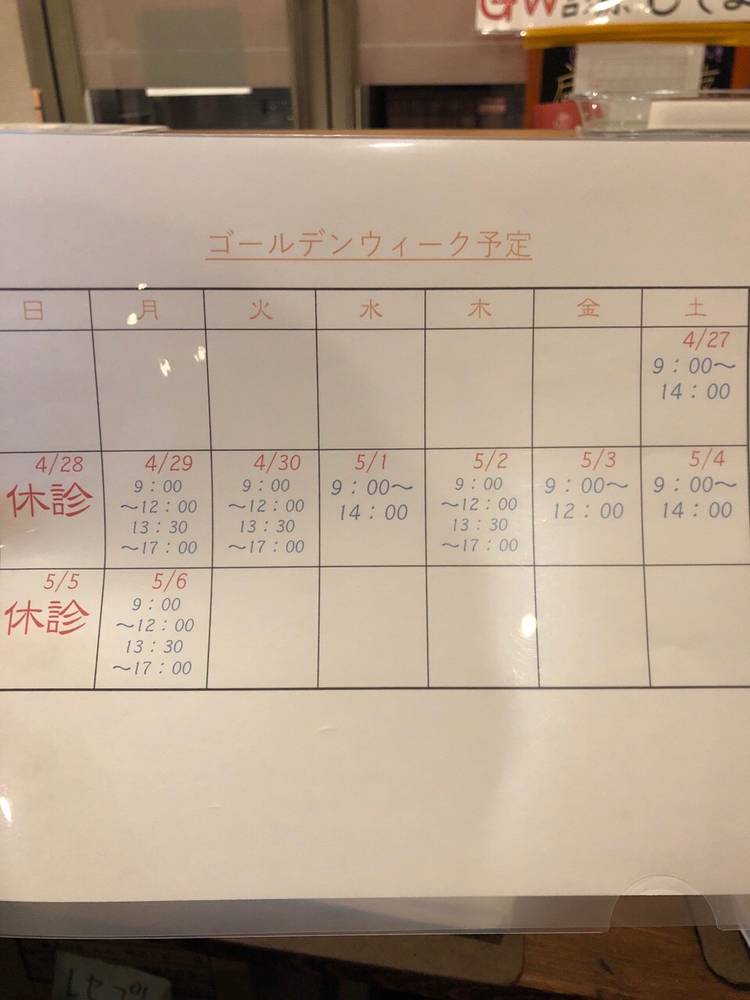 GW
ゴールデンウィーク予定
日 月 火 水 木 金 土
4/27
9:00～
14:00
4/28
休診
4/29
9:00
～12:00
13:30
～17:00
4/30
9:00
～12:00
13:30
～17:00
5/1
9:00～
14:00
5/2
9:00
～12:00
13:30
～17:00
5/3
9:00～
12:00
5/4
9:00～
14:00
5/5
休診
5/6
9:00
～12:00
13:30
～17:00